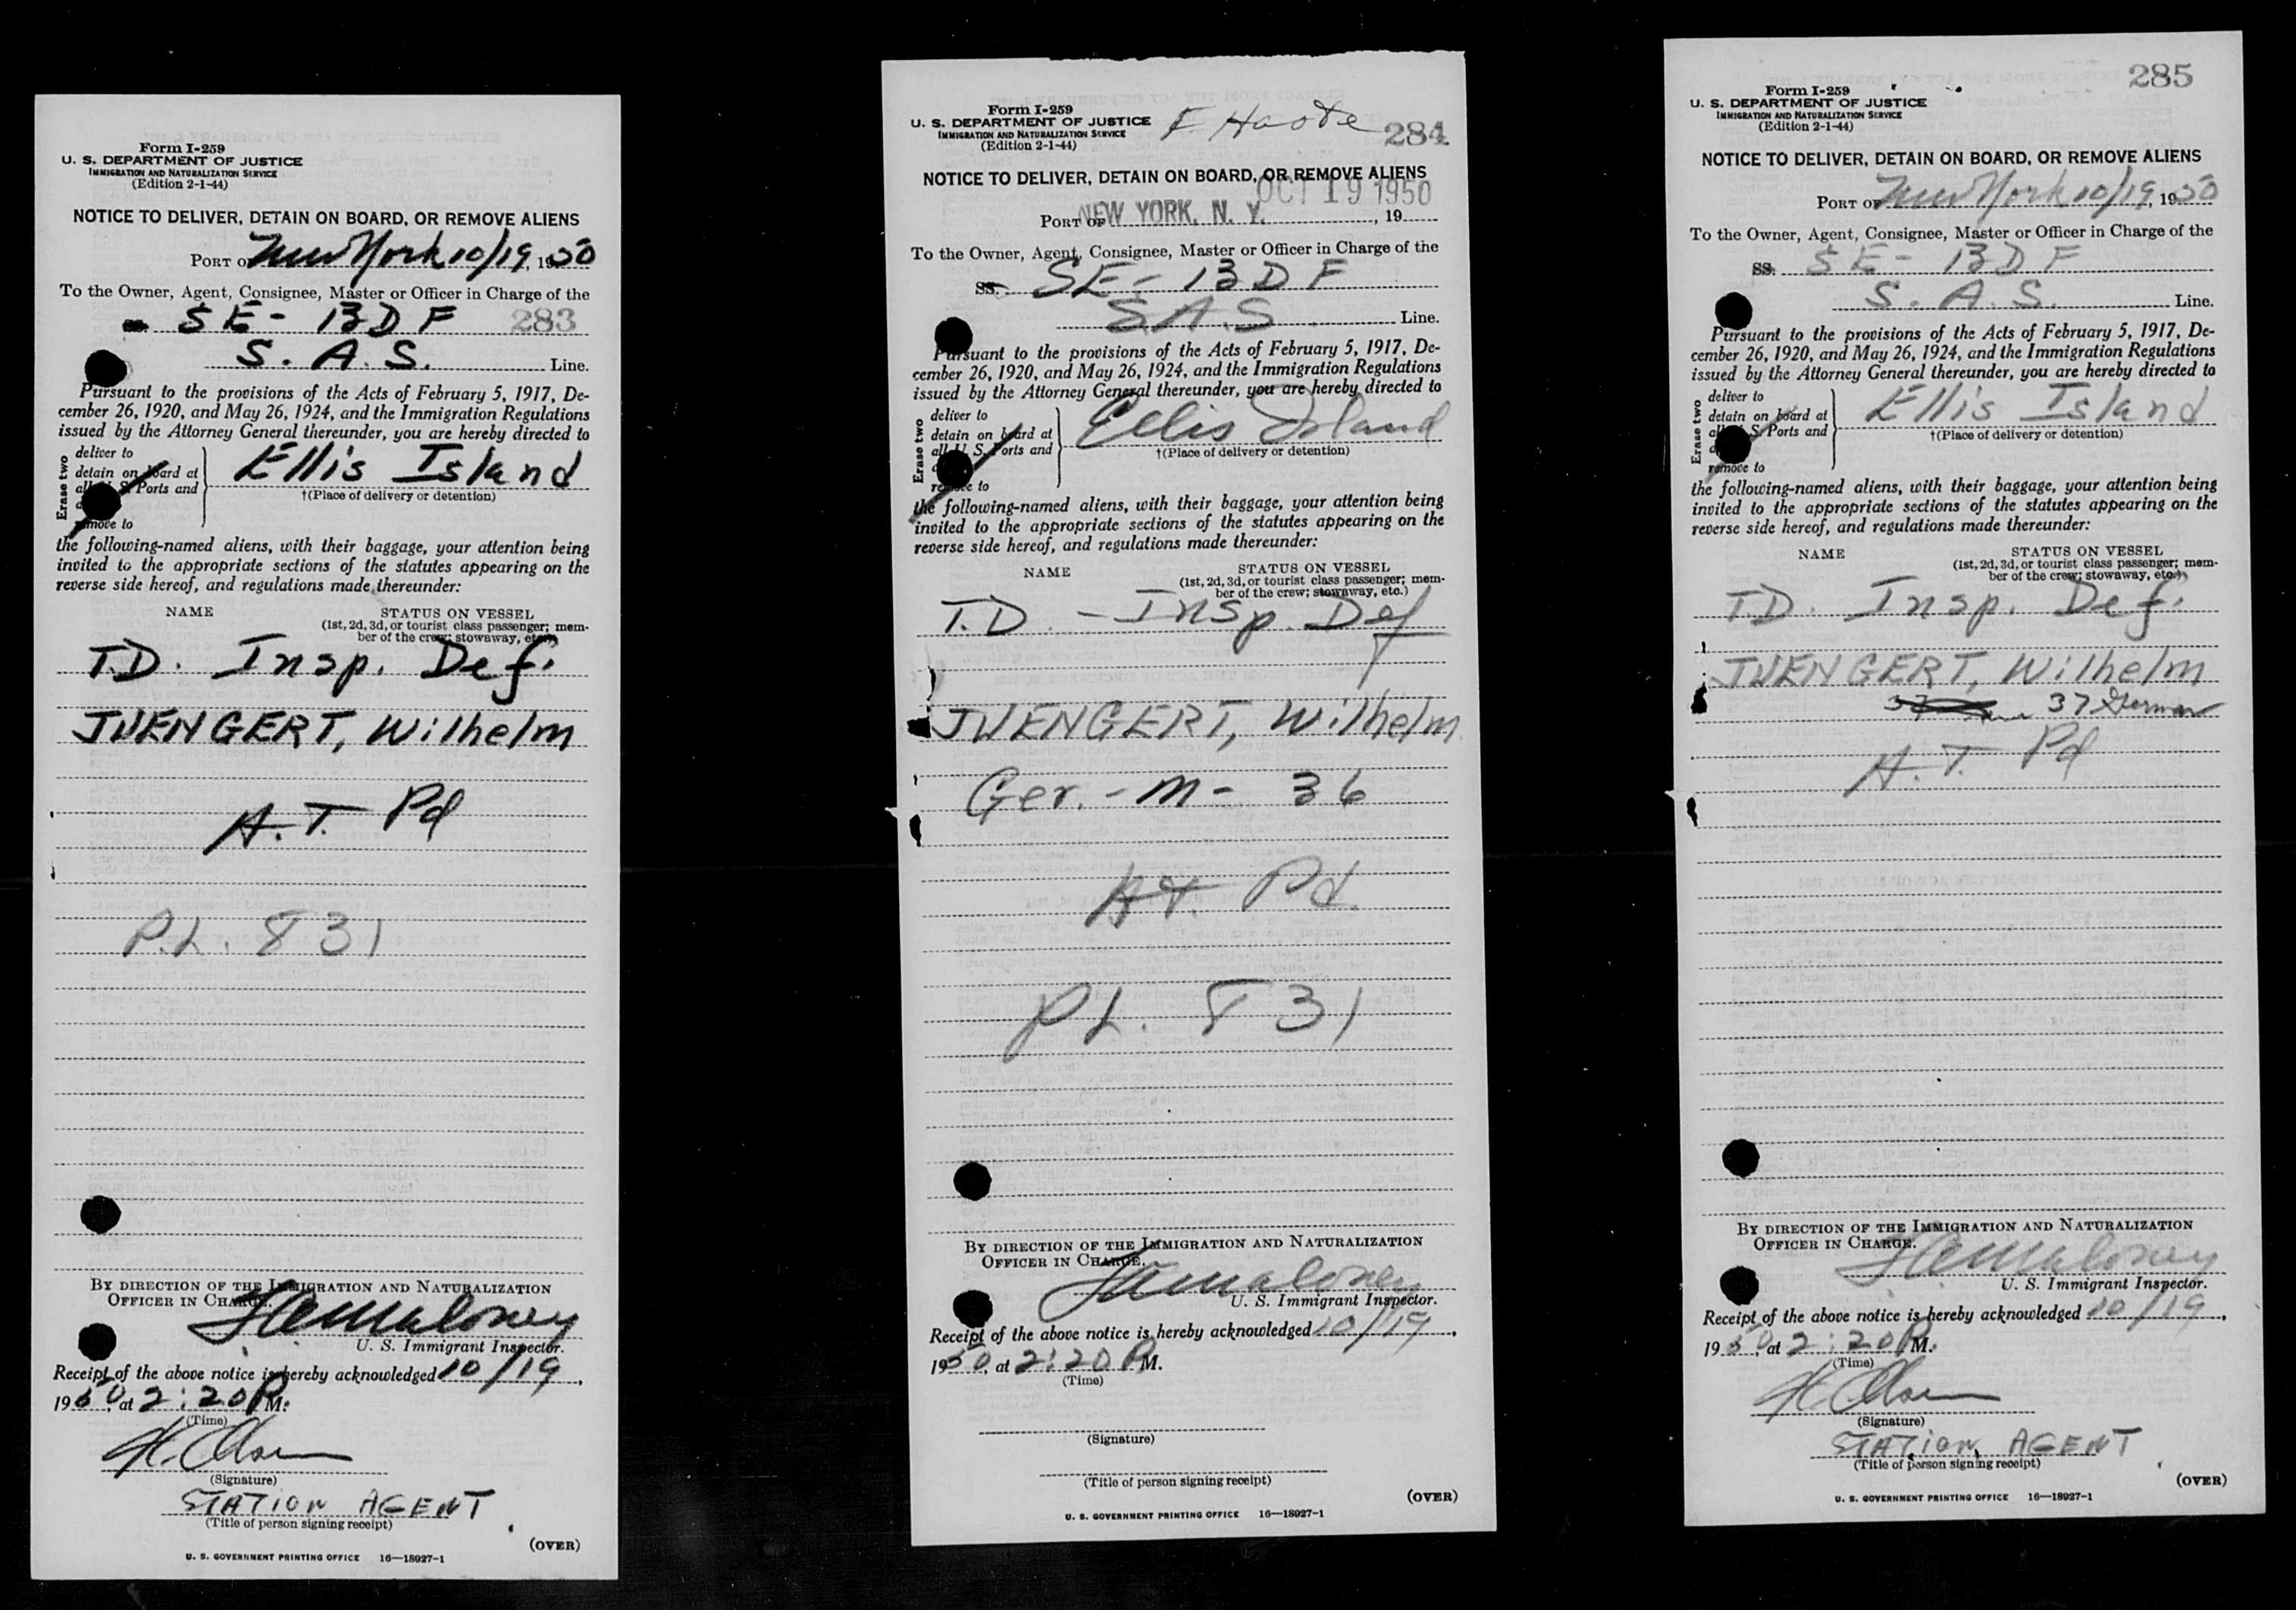 Form I-259
U. S. DEPARTMENT OF JUSTICE
IMMIGRATION AND NATURALIZATION SERVICE
(Edition 2-1-44)
NOTICE TO DELIVER, DETAIN ON BOARD, OR REMOVE ALIENS
PORT OF New York 10/19, 1950
To the Owner, Agent, Consignee, Master or Officer in Charge of the
SE- BDF 283
S. A. S. Line.
Pursuant to the provisions of the Acts of February 5, 1917, De-
cember 26, 1920, and May 26, 1924, and the Immigration Regulations
issued by the Attorney General thereunder, you are hereby directed to
Erase two
deliver to
detain on board at
all U. S. Ports and
remove to
Ellis Island
†(Place of delivery or detention)
the following-named aliens, with their baggage, your attention being
invited to the appropriate sections of the statutes appearing on the
reverse side hereof, and regulations made thereunder:
NAME STATUS ON VESSEL
(1st, 2d, 3d, or tourist class passenger; mem-
ber of the crew; stowaway, etc.)
T.D. Insp. Def.
JUENGERT, Wilhelm
A.T. Pd
P.L. 831
BY DIRECTION OF THE IMMIGRATION AND NATURALIZATION
OFFICER IN CHARGE.
Maloney
U. S. Immigrant Inspector.
Receipt of the above notice is hereby acknowledged 10/19,
1950, at 2:20 P M.
(Time)
H. Olsen
(Signature)
STATION AGENT
(Title of person signing receipt)
(OVER)
U. S. GOVERNMENT PRINTING OFFICE 16—18927-1
Form I-259
U. S. DEPARTMENT OF JUSTICE
IMMIGRATION AND NATURALIZATION SERVICE
(Edition 2-1-44)
284
NOTICE TO DELIVER, DETAIN ON BOARD, OR REMOVE ALIENS
OCT 19 1950
PORT OF NEW YORK, N. Y. , 19
To the Owner, Agent, Consignee, Master or Officer in Charge of the
SS. SE- BDF
S.A.S. Line.
Pursuant to the provisions of the Acts of February 5, 1917, De-
cember 26, 1920, and May 26, 1924, and the Immigration Regulations
issued by the Attorney General thereunder, you are hereby directed to
Erase two
deliver to
detain on board at
all U. S. Ports and
remove to
Ellis Island
†(Place of delivery or detention)
the following-named aliens, with their baggage, your attention being
invited to the appropriate sections of the statutes appearing on the
reverse side hereof, and regulations made thereunder:
NAME STATUS ON VESSEL
(1st, 2d, 3d, or tourist class passenger; mem-
ber of the crew; stowaway, etc.)
T.D. - Insp. Def
JUENGERT, Wilhelm
Ger. - M - 36
A.T. Pd.
P.L. 831
BY DIRECTION OF THE IMMIGRATION AND NATURALIZATION
OFFICER IN CHARGE.
Maloney
U. S. Immigrant Inspector.
Receipt of the above notice is hereby acknowledged 10/19,
1950, at 2:20 P M.
(Time)
(Signature)
(Title of person signing receipt)
(OVER)
U. S. GOVERNMENT PRINTING OFFICE 16—18927-1
285
Form I-259
U. S. DEPARTMENT OF JUSTICE
IMMIGRATION AND NATURALIZATION SERVICE
(Edition 2-1-44)
NOTICE TO DELIVER, DETAIN ON BOARD, OR REMOVE ALIENS
PORT OF New York 10/19, 1950
To the Owner, Agent, Consignee, Master or Officer in Charge of the
SS. SE- BDF
S. A. S. Line.
Pursuant to the provisions of the Acts of February 5, 1917, De-
cember 26, 1920, and May 26, 1924, and the Immigration Regulations
issued by the Attorney General thereunder, you are hereby directed to
Erase two
deliver to
detain on board at
all U. S. Ports and
remove to
Ellis Island
†(Place of delivery or detention)
the following-named aliens, with their baggage, your attention being
invited to the appropriate sections of the statutes appearing on the
reverse side hereof, and regulations made thereunder:
NAME STATUS ON VESSEL
(1st, 2d, 3d, or tourist class passenger; mem-
ber of the crew; stowaway, etc.)
T.D. Insp. Def.
JUENGERT, Wilhelm
37 German
A.T. Pd
BY DIRECTION OF THE IMMIGRATION AND NATURALIZATION
OFFICER IN CHARGE.
Maloney
U. S. Immigrant Inspector.
Receipt of the above notice is hereby acknowledged 10/19,
1950, at 2:20 P M.
(Time)
H. Olsen
(Signature)
STATION AGENT
(Title of person signing receipt)
(OVER)
U. S. GOVERNMENT PRINTING OFFICE 16—18927-1